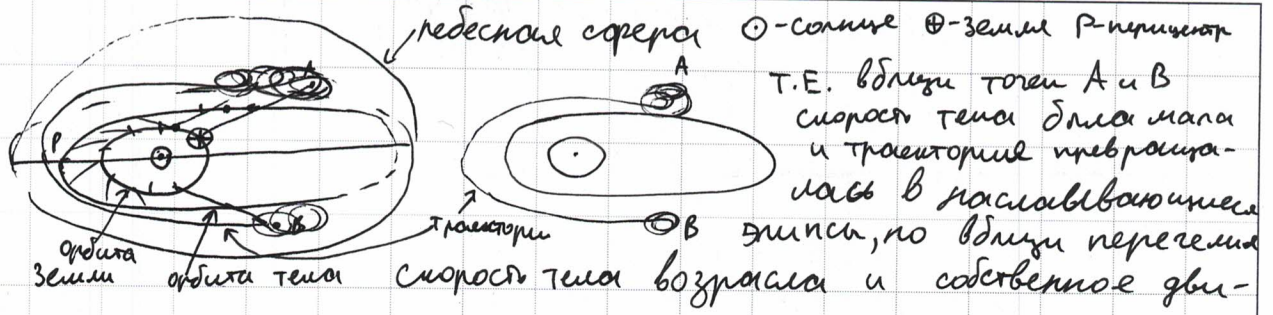 небесная сфера
⊙-солнце ⊕-Земля P-перицентр
A
Т.Е. вблизи точек A и B
скорость тела была мала
и траектория превраща-
лась в наслаивающиеся
элипсы, но вблизи перегелия
скорость тела возрасла и собственное дви-
P
A
B
B
траектории
орбита
Земли
орбита тела